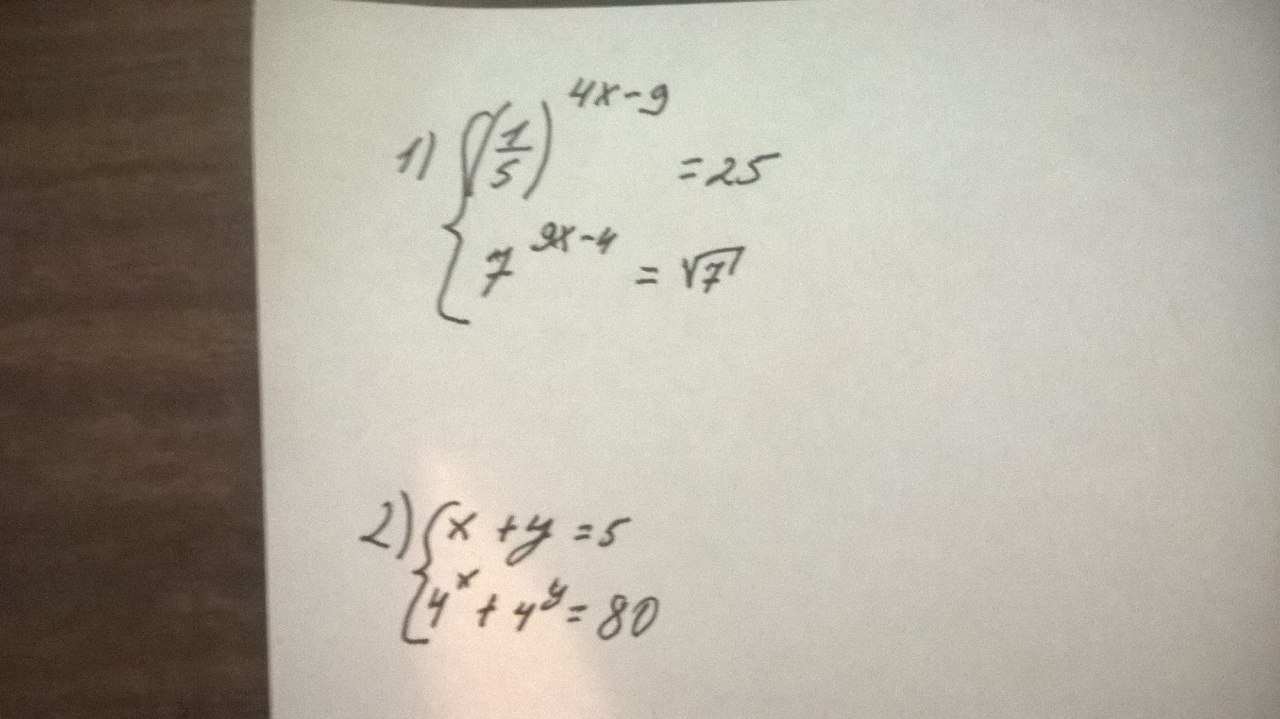 1) { (1/5)^(4x-9) = 25
7^(9x-4) = √7
2) { x + y = 5
4^x + 4^y = 80